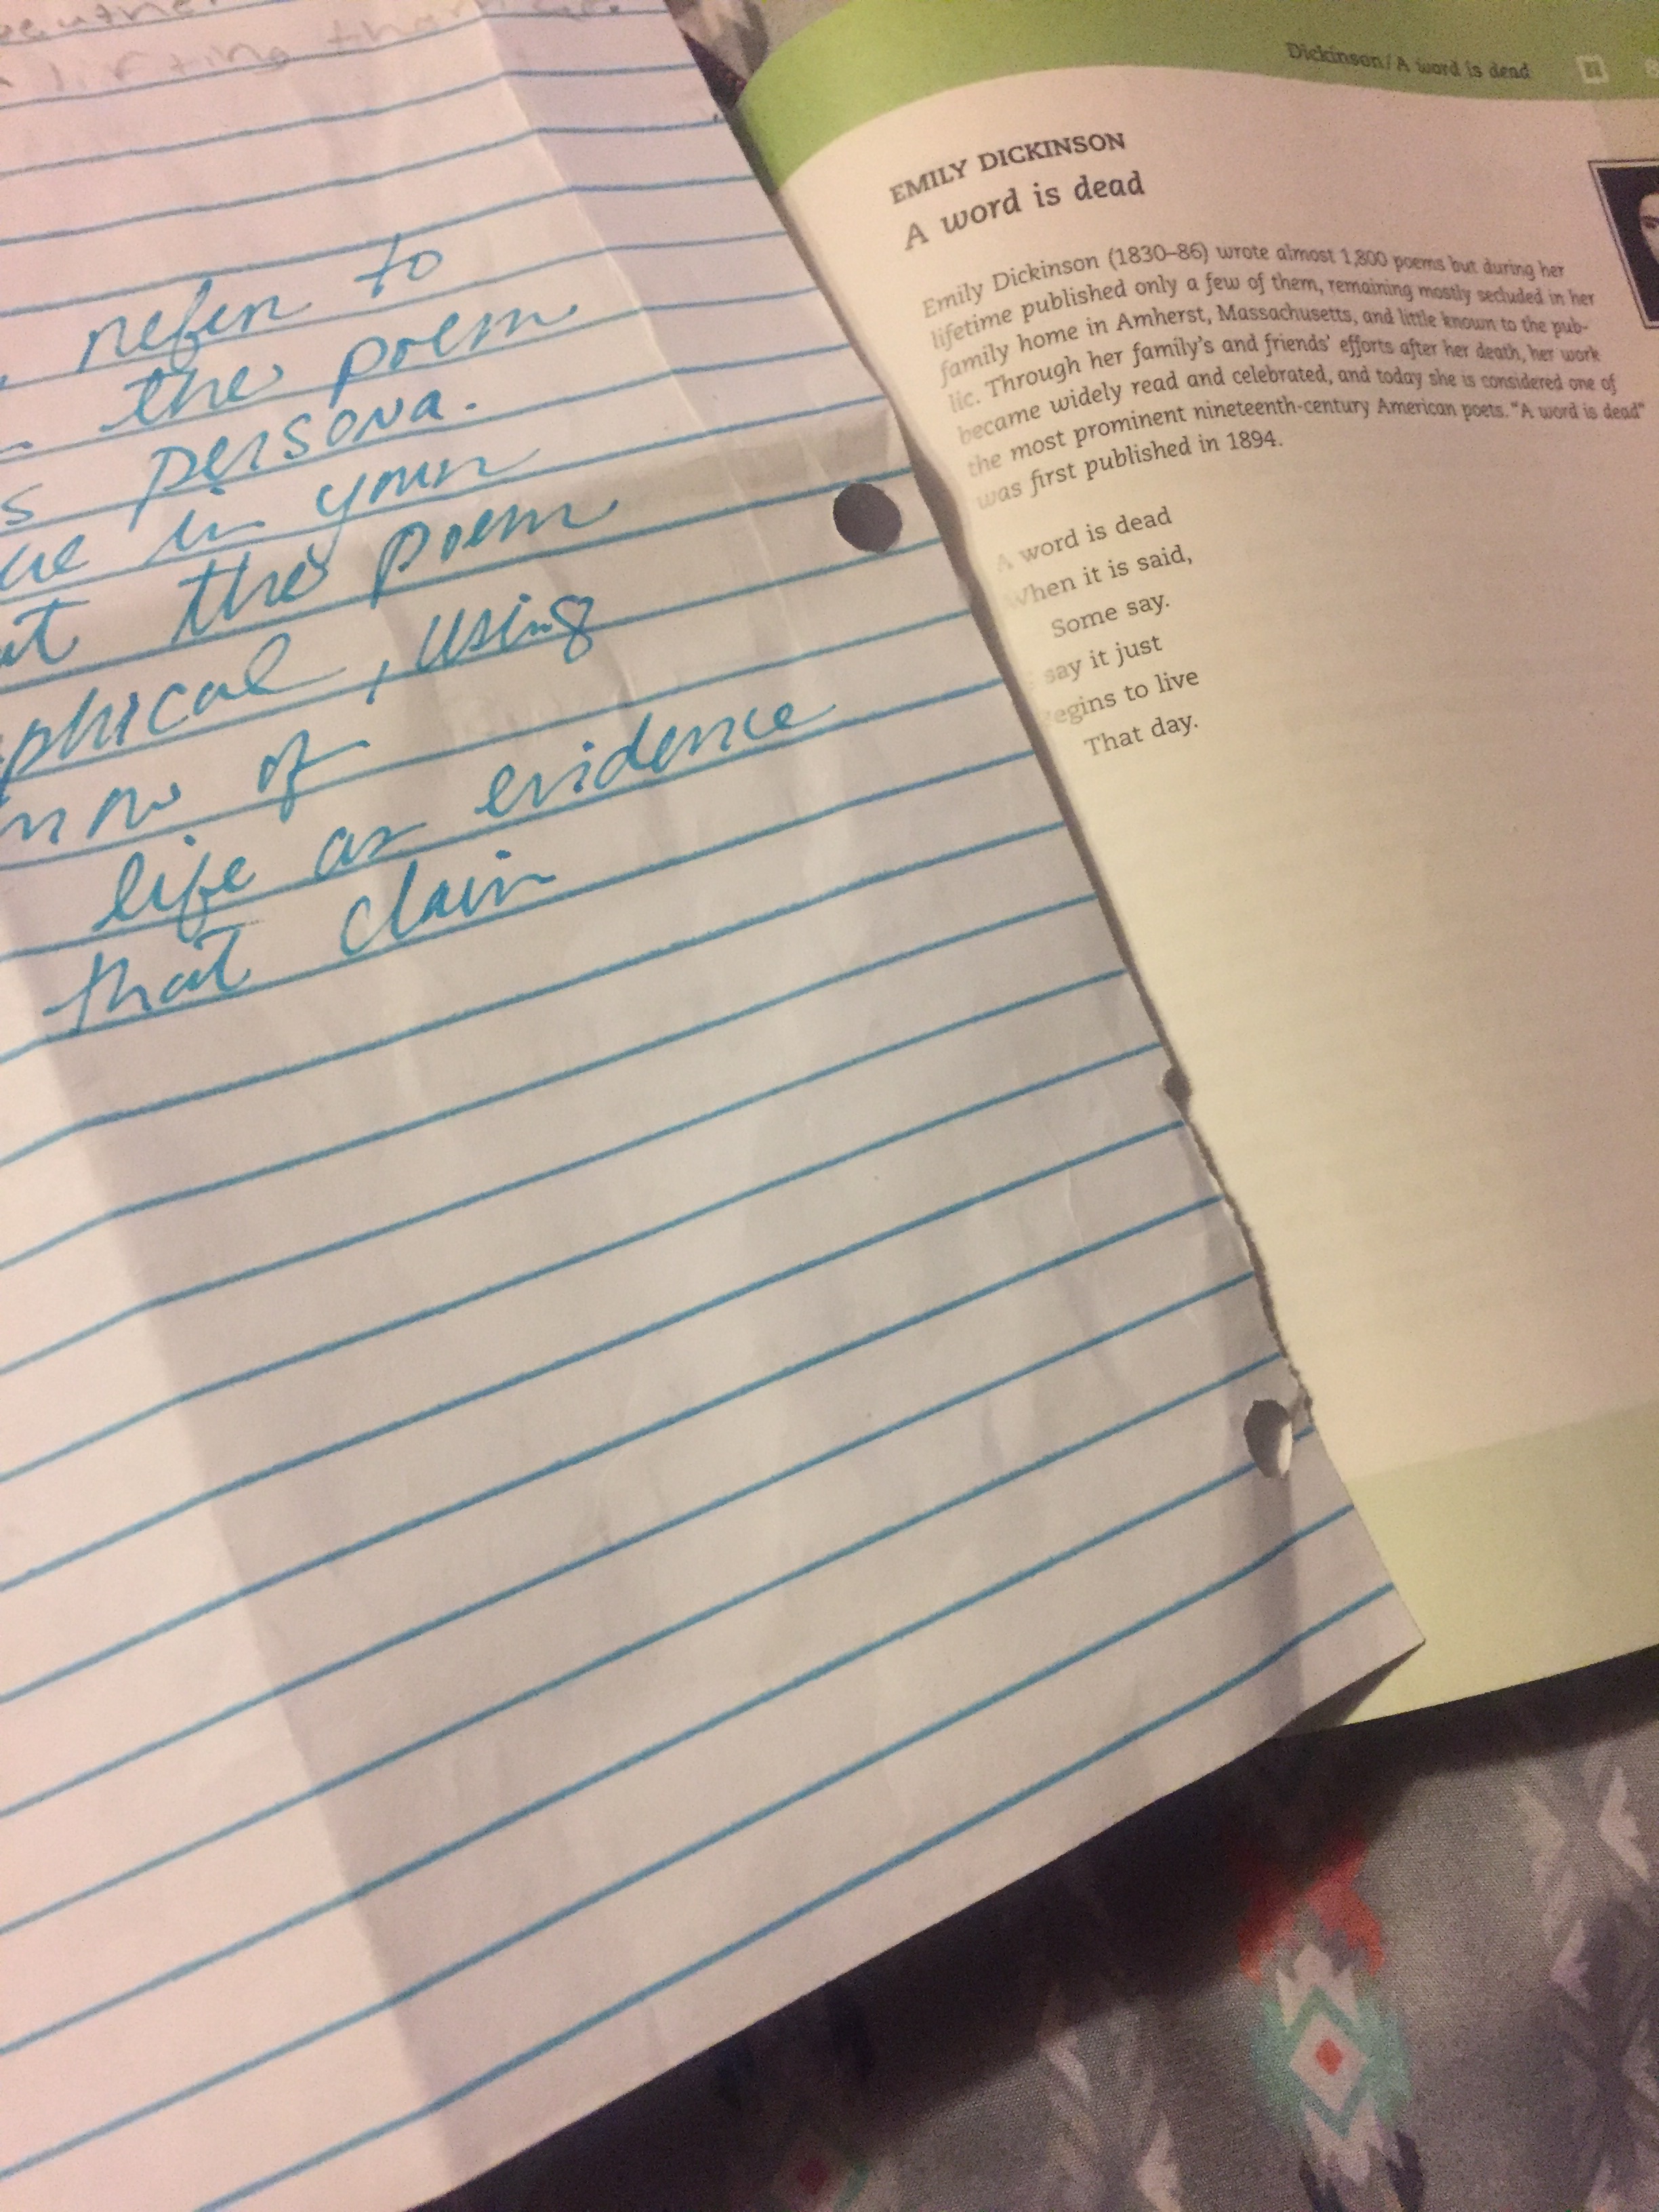 refer to
the poem
s persona.
ue in your
ut the poem
phical, using
now of
life as evidence
that claim
Dickinson/A word is dead
EMILY DICKINSON
A word is dead
Emily Dickinson (1830–86) wrote almost 1,800 poems but during her
lifetime published only a few of them, remaining mostly secluded in her
family home in Amherst, Massachusetts, and little known to the pub-
lic. Through her family's and friends' efforts after her death, her work
became widely read and celebrated, and today she is considered one of
the most prominent nineteenth-century American poets. "A word is dead"
was first published in 1894.
A word is dead
When it is said,
Some say.
say it just
egins to live
That day.